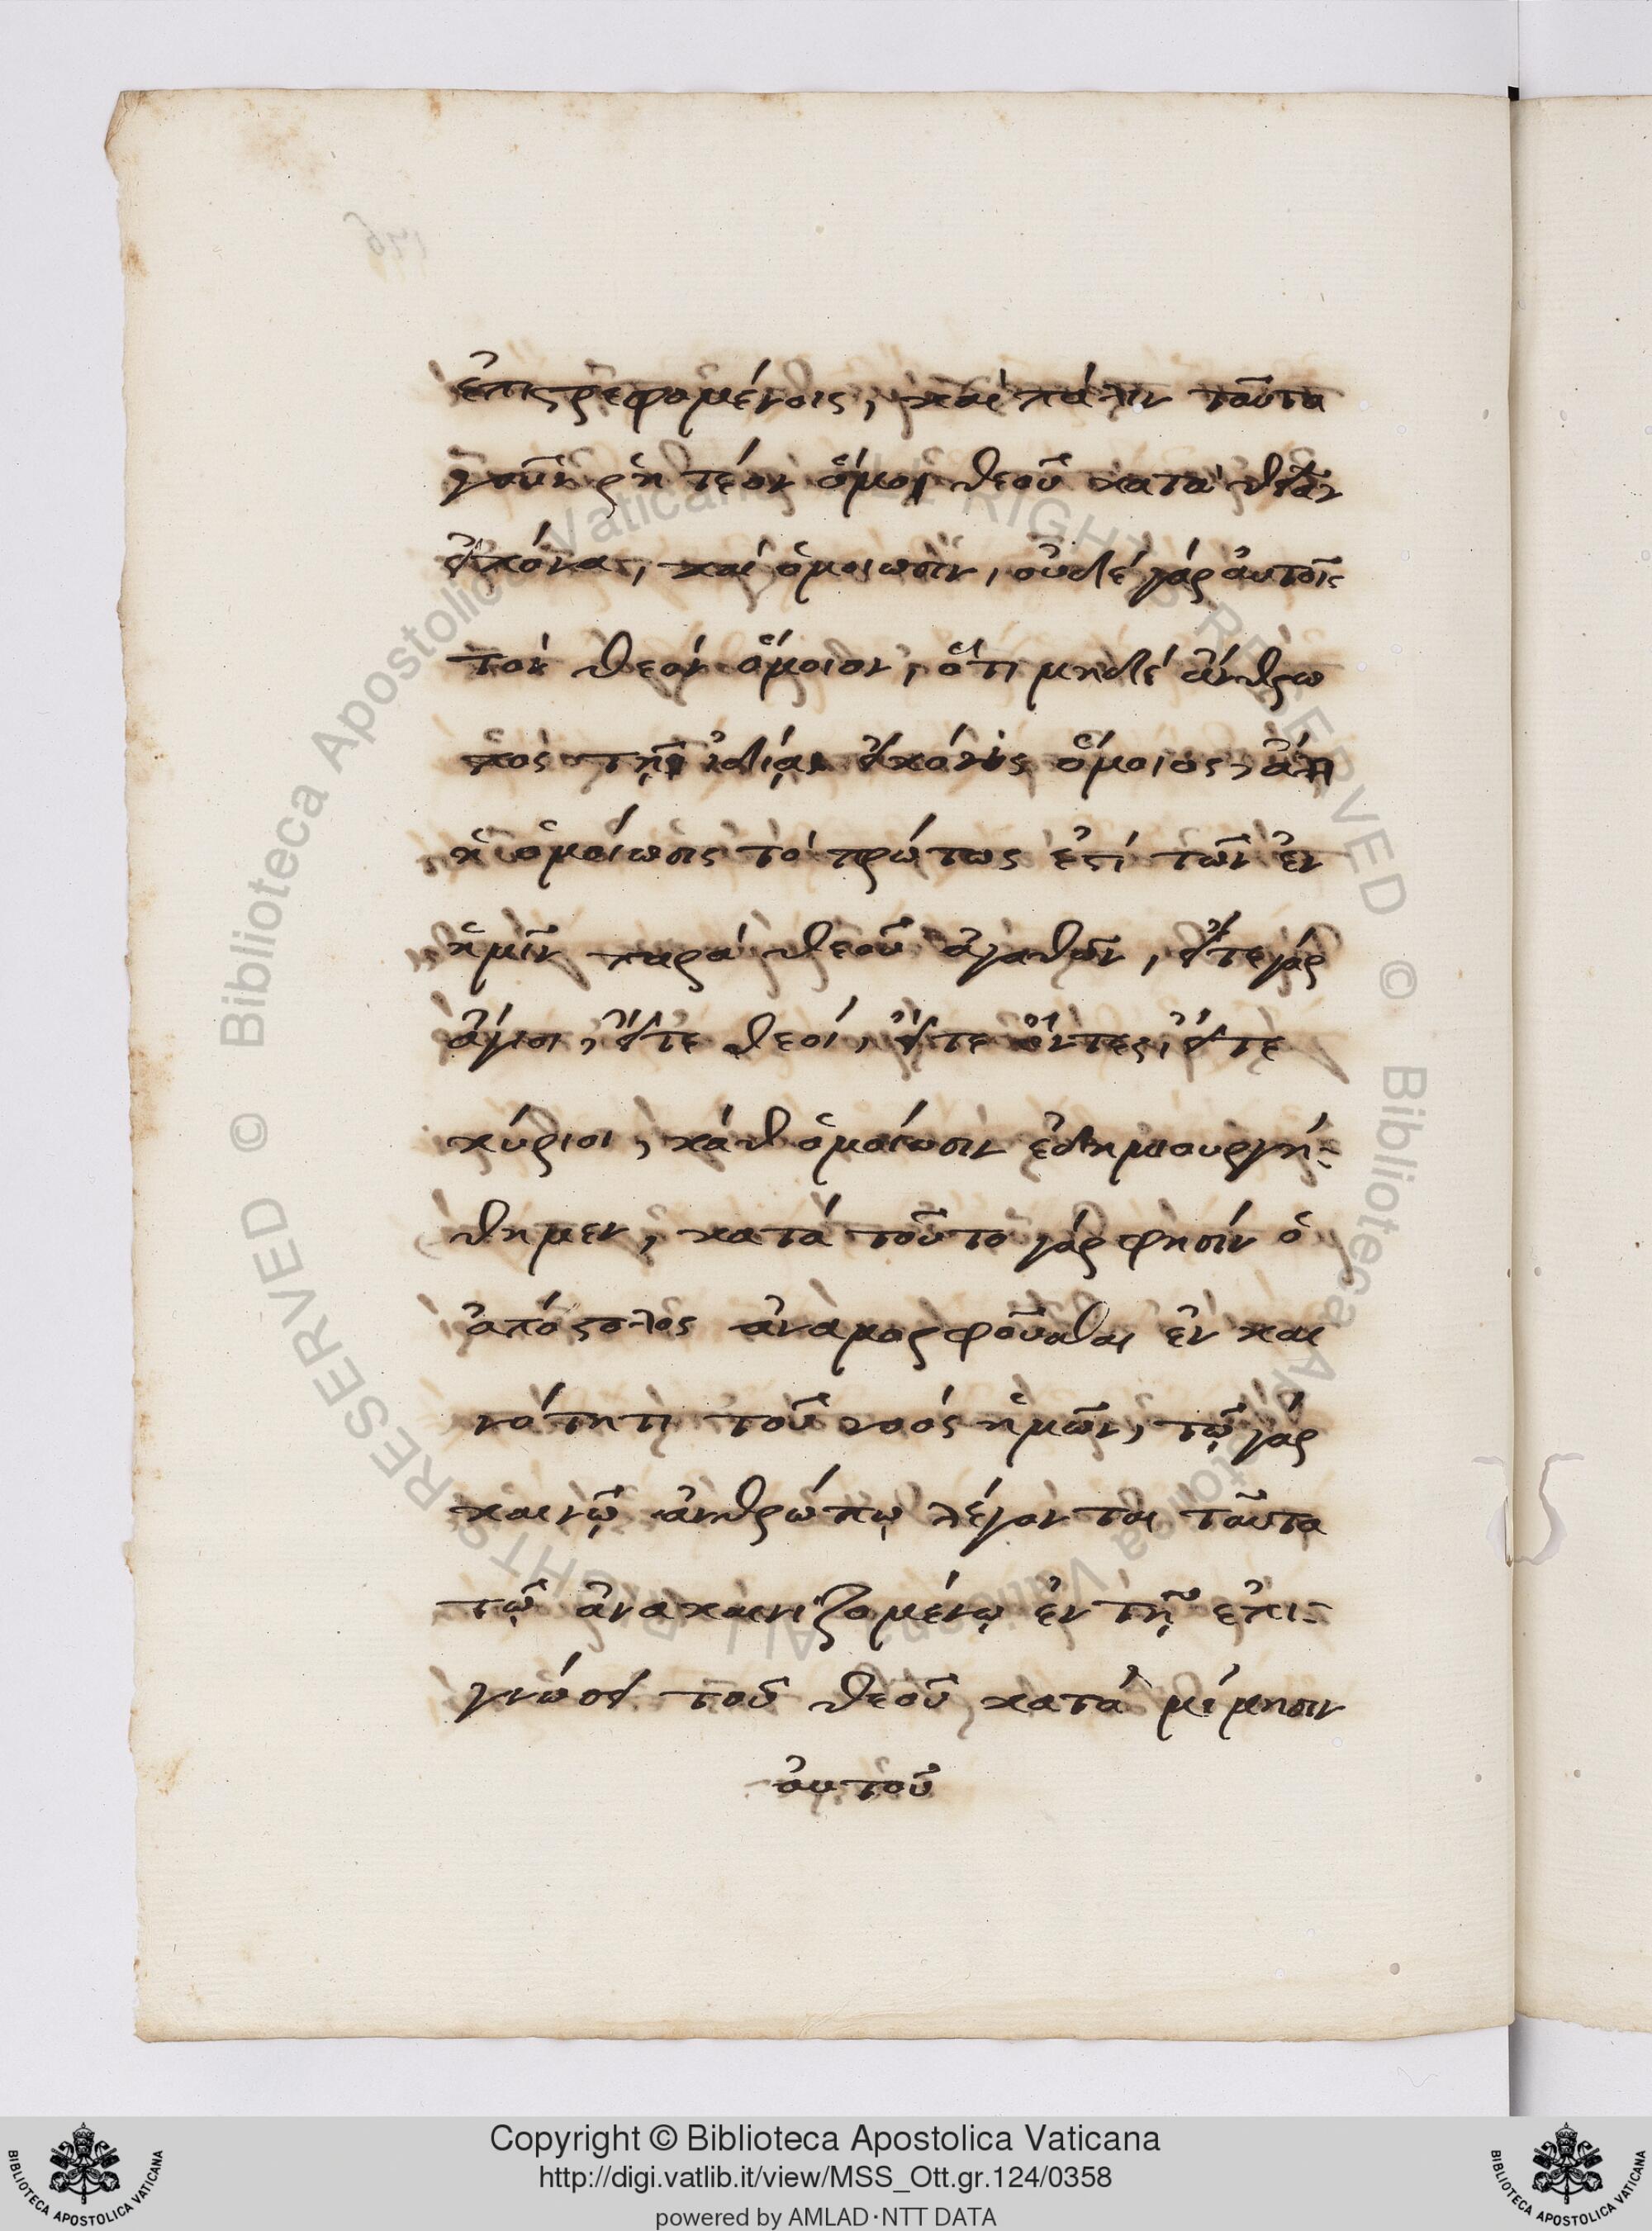 ἐπιστρεφομένοις, καὶ πάλιν ταῦτα
γοῦν ῥητέον ὅμοι θεοῦ κατὰ θείαν
εἰκόνα, καὶ ὁμοίωσιν, οὐδέ γάρ αὐτοῖς
τὸν θεὸν ὅμοιον, ὅτι μηδέ ἄνθρω
πος τῇ ἰδίᾳ εἰκόνις ὅμοιος,
ἡ ὁμοίωσις τὸ πρώτως ἐστί τῶν ἐν
ἡμῖν παρὰ θεοῦ ἀγαθῶν, εἴτε γάρ
ἅγιοι, εἴτε θεοί, εἴτε ὄντες, εἴτε
κύριοι, κάθ ὁμοίωσιν ἐδημιουργή-
θημεν, κατά τοῦτο γάρ φησίν ὁ
ἀπόστολος ἀναμορφοῦσθαι ἐν και
νότητι τοῦ νοός ἡμῶν, τῷ γάρ
καινῷ ἀνθρώπῳ λέγονται ταῦτα
τῷ ἀνακαινιζομένῳ ἐν τῇ ἐπι-
γνώσει τοῦ θεοῦ κατὰ μίμησιν
αὐτοῦ
Copyright © Biblioteca Apostolica Vaticana
http://digi.vatlib.it/view/MSS_Ott.gr.124/0358
powered by AMLAD·NTT DATA
BIBLIOTECA APOSTOLICA VATICANA
BIBLIOTECA APOSTOLICA VATICANA
© Biblioteca Apostolica Vaticana ALL RIGHTS RESERVED
© Biblioteca Apostolica Vaticana ALL RIGHTS RESERVED